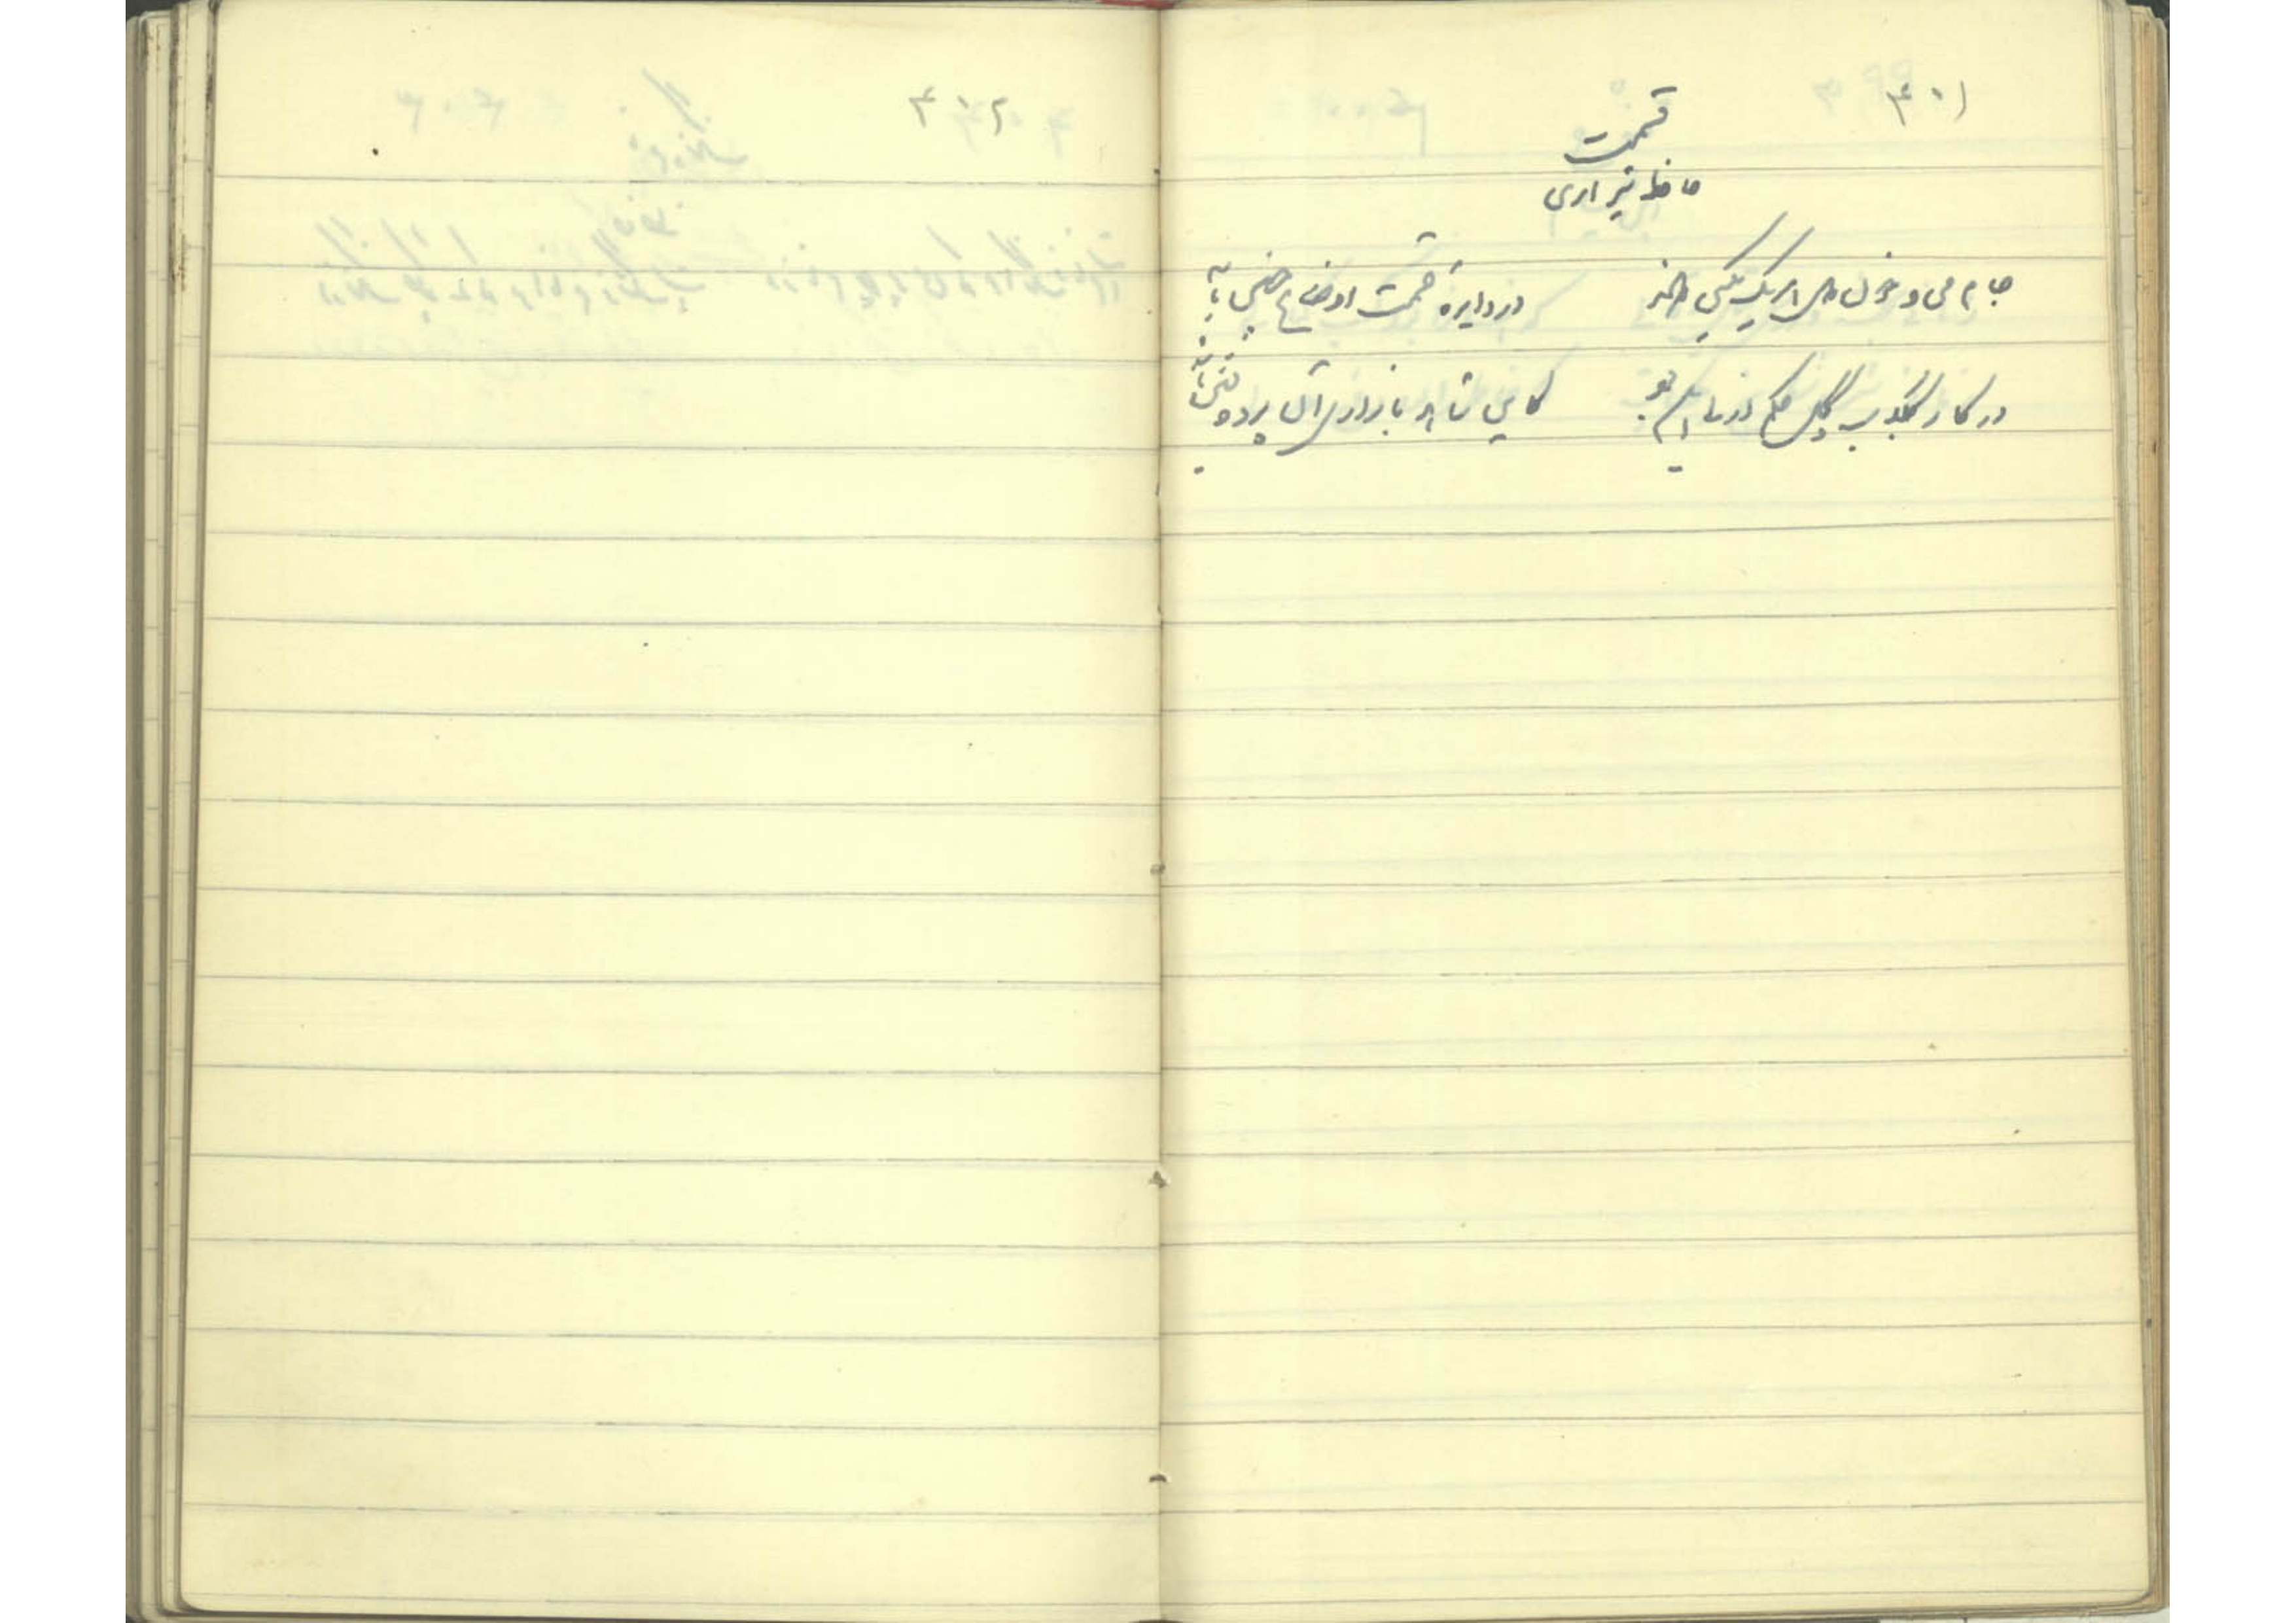 ۴۰۱
قسمت
حافظ شیرازی
جام می و خون دل هر یک بکسی دادند
در دایره قسمت اوضاع چنین باشد
در کار گلاب و گل حکم ازلی این بود
کاین شاهد بازاری وان پرده نشین باشد
۴۰۲